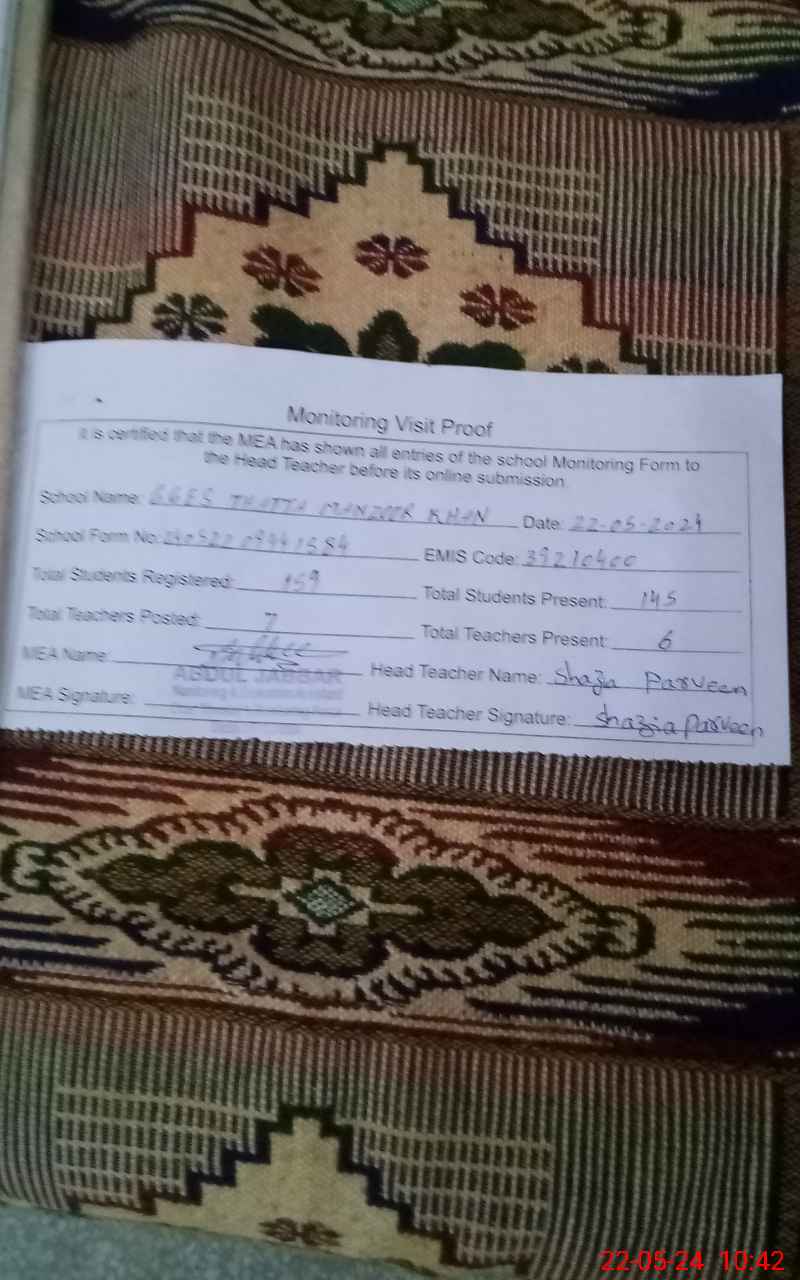 Monitoring Visit Proof
It is certified that the MEA has shown all entries of the school Monitoring Form to
the Head Teacher before its online submission.
School Name: GGES THATTA MANZOOR KHAN Date: 22-05-2024
School Form No: EMIS Code: 39210400
Total Students Registered: 159 Total Students Present: 145
Total Teachers Posted: 7 Total Teachers Present: 6
MEA Name: Head Teacher Name: Shazia Parveen
ABDUL JABBAR
MEA Signature: Head Teacher Signature: Shazia Parveen
22-05-24 10:42